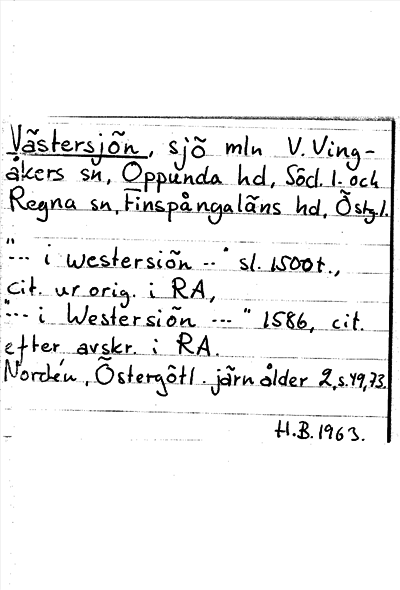 Västersjön, sjö mln V. Ving-
åkers sn, Oppunda hd, Söd. l. och
Regna sn, Finspångaläns hd, Östg. l.
"--- i westersiön --" sl. 1500t.,
cit. ur orig. i RA,
"--- i Westersiön ---" 1586, cit.
efter avskr. i RA.
Nordén, Östergötl. järnålder 2, s. 49, 73.
H.B. 1963.